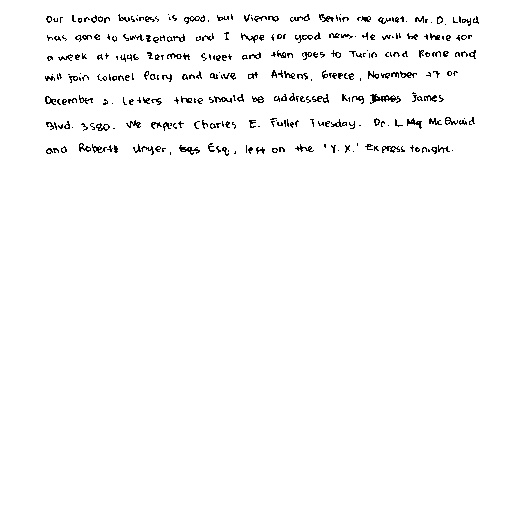 Our London business is good, but Vienna and Berlin are quiet. Mr. D. Lloyd
has gone to Switzerland and I hope for good news. He will be there for
a week at 1496 Zermott Street and then goes to Turin and Rome and
will join Colonel Parry and arive at Athens, Greece, November 27 or
December 2. Letters there should be addressed King James James
Blvd. 3580. We expect Charles E. Fuller Tuesday. Dr. L. Mq McQuaid
and Robert Unger, Esq., left on the "Y. X." Express tonight.